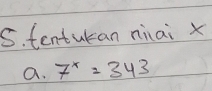 5. tentukan nilai x
a. 7ˣ = 343